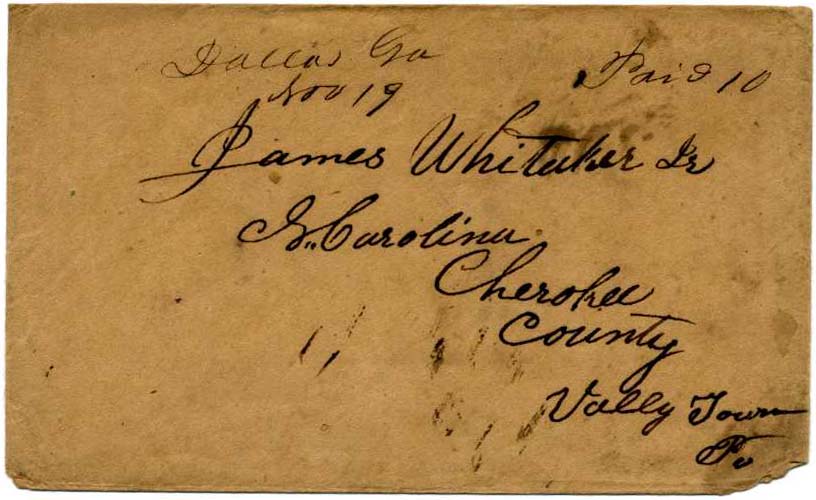 Dallas Ga
Nov 19
Paid 10
James Whitaker Jr
N. Carolina
Cherokee
County
Vally Town
Po